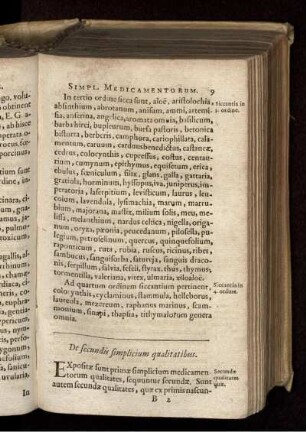 SIMPL. MEDICAMENTORUM. 9
In tertio ordine sicca sunt, aloë, aristolochia,
absinthium, abrotanum, anisum, ammi, artemi-
sia, asserina, angelica, aromata omnia, basilicum,
barba hirci, bupleurum, bursa pastoris, betonica
bistorta, berberis, camphora, cariophillata, cala-
mentum, caruum, cardunbenedictus, castaneæ,
cedrus, colocynthis, cupressus, costus, centau-
rium, cuminum, epithymus, equisetum, erica,
thus, fœniculum, filix, glans, galla, gattaria,
gratiola, horminum, hyssopus, iva, juniperus, im-
peratoria, laserpitium, levisticum, laurus, leu-
coium, lavendula, lysmachia, marum, marru-
bium, majorana, mastix, milium solis, meu, me-
lissa, melanthium, nardus celtica, nigella, origa-
num, oryza, pæonia, peucedanum, pilosella, pu-
legium, petroselinum, quercus, quinquefolium,
raponticum, ruta, ribia, ruscus, ricinus, ribes,
sambucus, sanguisorba, satureja, sanguis draco-
nis, serpillum, salvia, seseli, styrax, thus, thymus,
tormentilla, valeriana, vitex, ulmaria, xiloaloë.
Ad quartum ordinem siccantium pertinent,
colocynthis, cyclaminus, flammula, helleborus,
laureola, mezereum, raphanus marinus, scam-
monium, sinapi, thapsia, tithymalorum genera
omnia.
De secundis simplicium qualitatibus.
EXpositæ sunt primæ simplicium medicamen-
torum qualitates, sequuntur secundæ. Sunt
autem secundæ qualitates, quæ ex primis nascun-
B 2
Siccantia in
3. ordine.
Siccantia in
4. ordine.
Secundæ
qualitates
quæ.
In